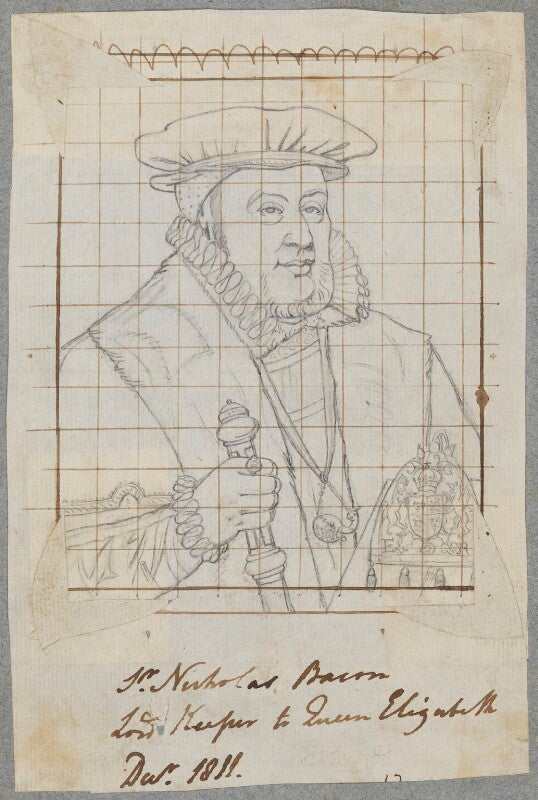 Sr. Nicholas Bacon
Lord Keeper to Queen Elizabeth
Decr. 1811.